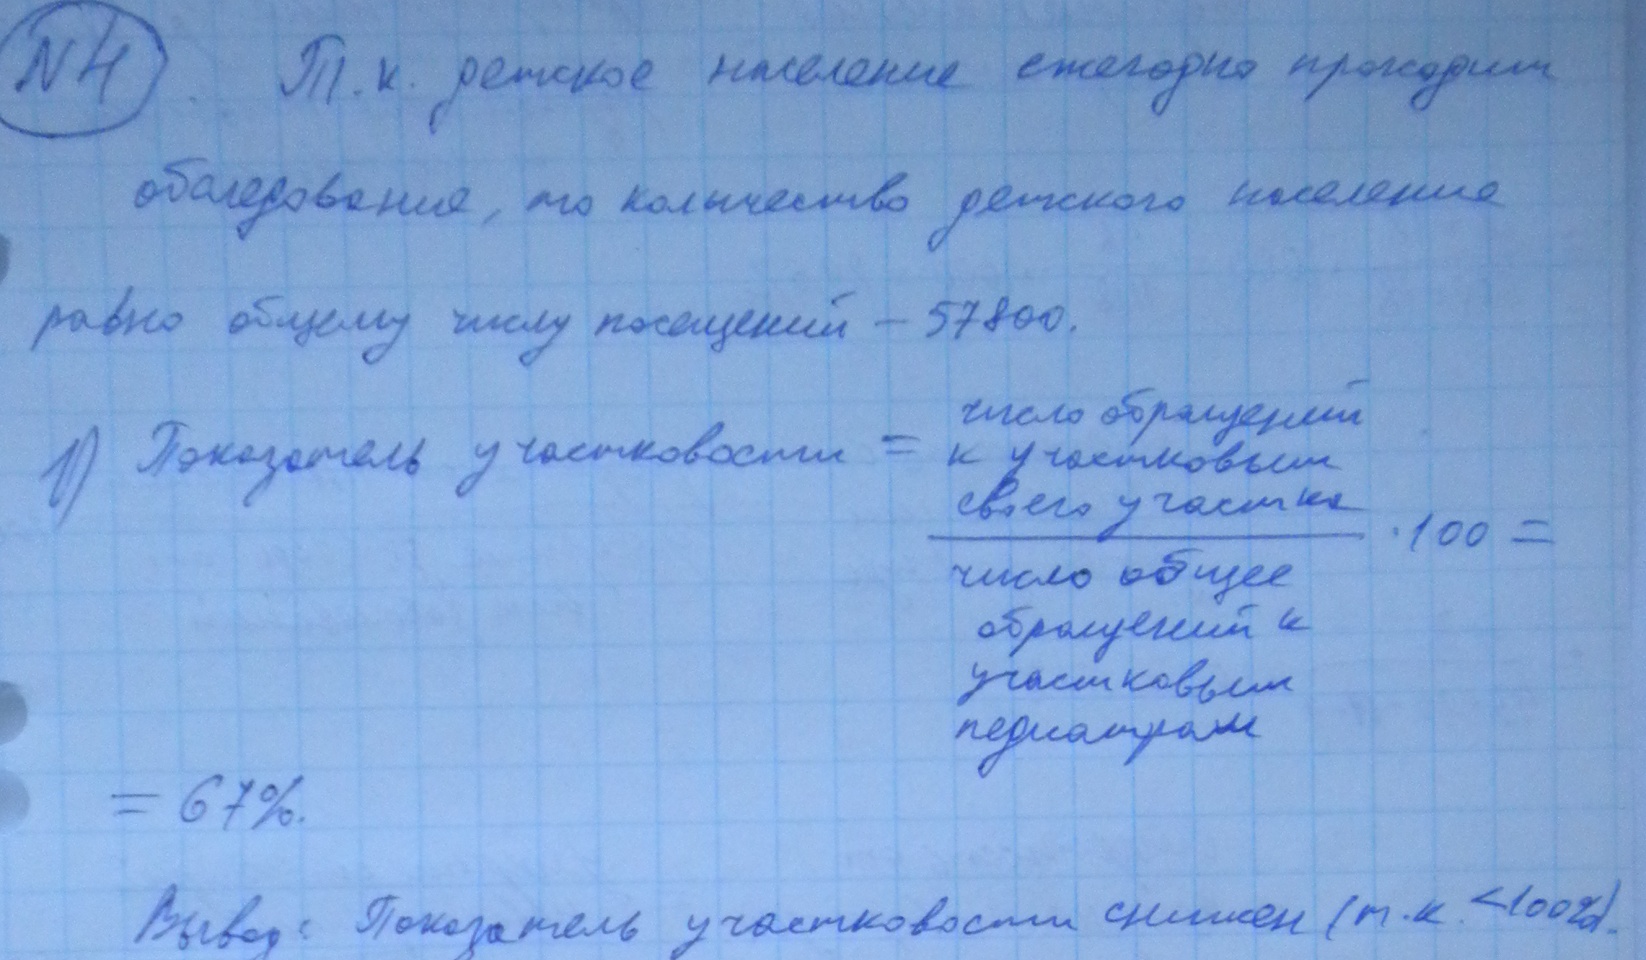 N4
Т.к. детское население ежегодно проходит
обследование, то количество детского население
равно общему числу посещений – 57800.
1) Показатель участковости = число обращений
к участковым
своего участка
· 100 =
число общее
обращений к
участковым
педиатрам
= 67%.
Вывод: Показатель участковости снижен (т.к. <100%).